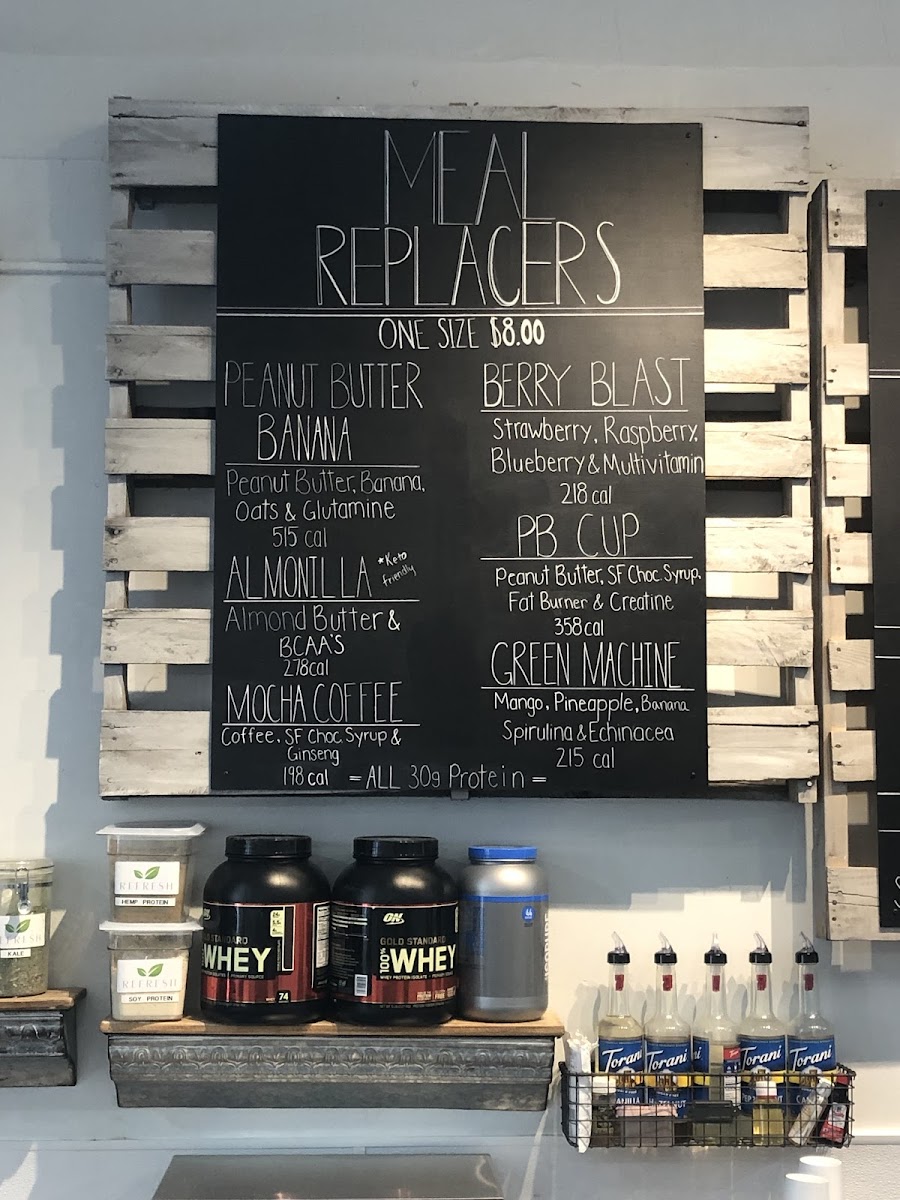 MEAL
REPLACERS
ONE SIZE $8.00
PEANUT BUTTER
BANANA
Peanut Butter, Banana,
Oats & Glutamine
515 cal
ALMONILLA *Keto
friendly
Almond Butter &
BCAA'S
278cal
MOCHA COFFEE
Coffee, SF Choc. Syrup &
Ginseng
198 cal
BERRY BLAST
Strawberry, Raspberry,
Blueberry & Multivitamin
218 cal
PB CUP
Peanut Butter, SF Choc. Syrup,
Fat Burner & Creatine
358 cal
GREEN MACHINE
Mango, Pineapple, Banana
Spirulina & Echinacea
215 cal
=ALL 30g Protein=
REFRESH
KALE
REFRESH
HEMP PROTEIN
REFRESH
SOY PROTEIN
STANDARD
WHEY
74
ON
GOLD STANDARD
100% WHEY
WHEY PROTEIN ISOLATE
44
Torani
Torani
Torani
Torani